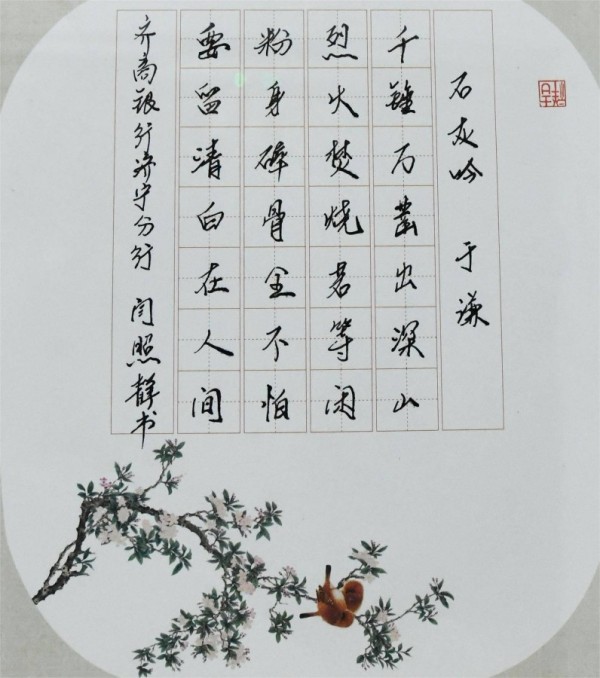 石灰吟 于谦
千锤万凿出深山
烈火焚烧若等闲
粉身碎骨全不怕
要留清白在人间
齐商银行济宁分行 闫照静书